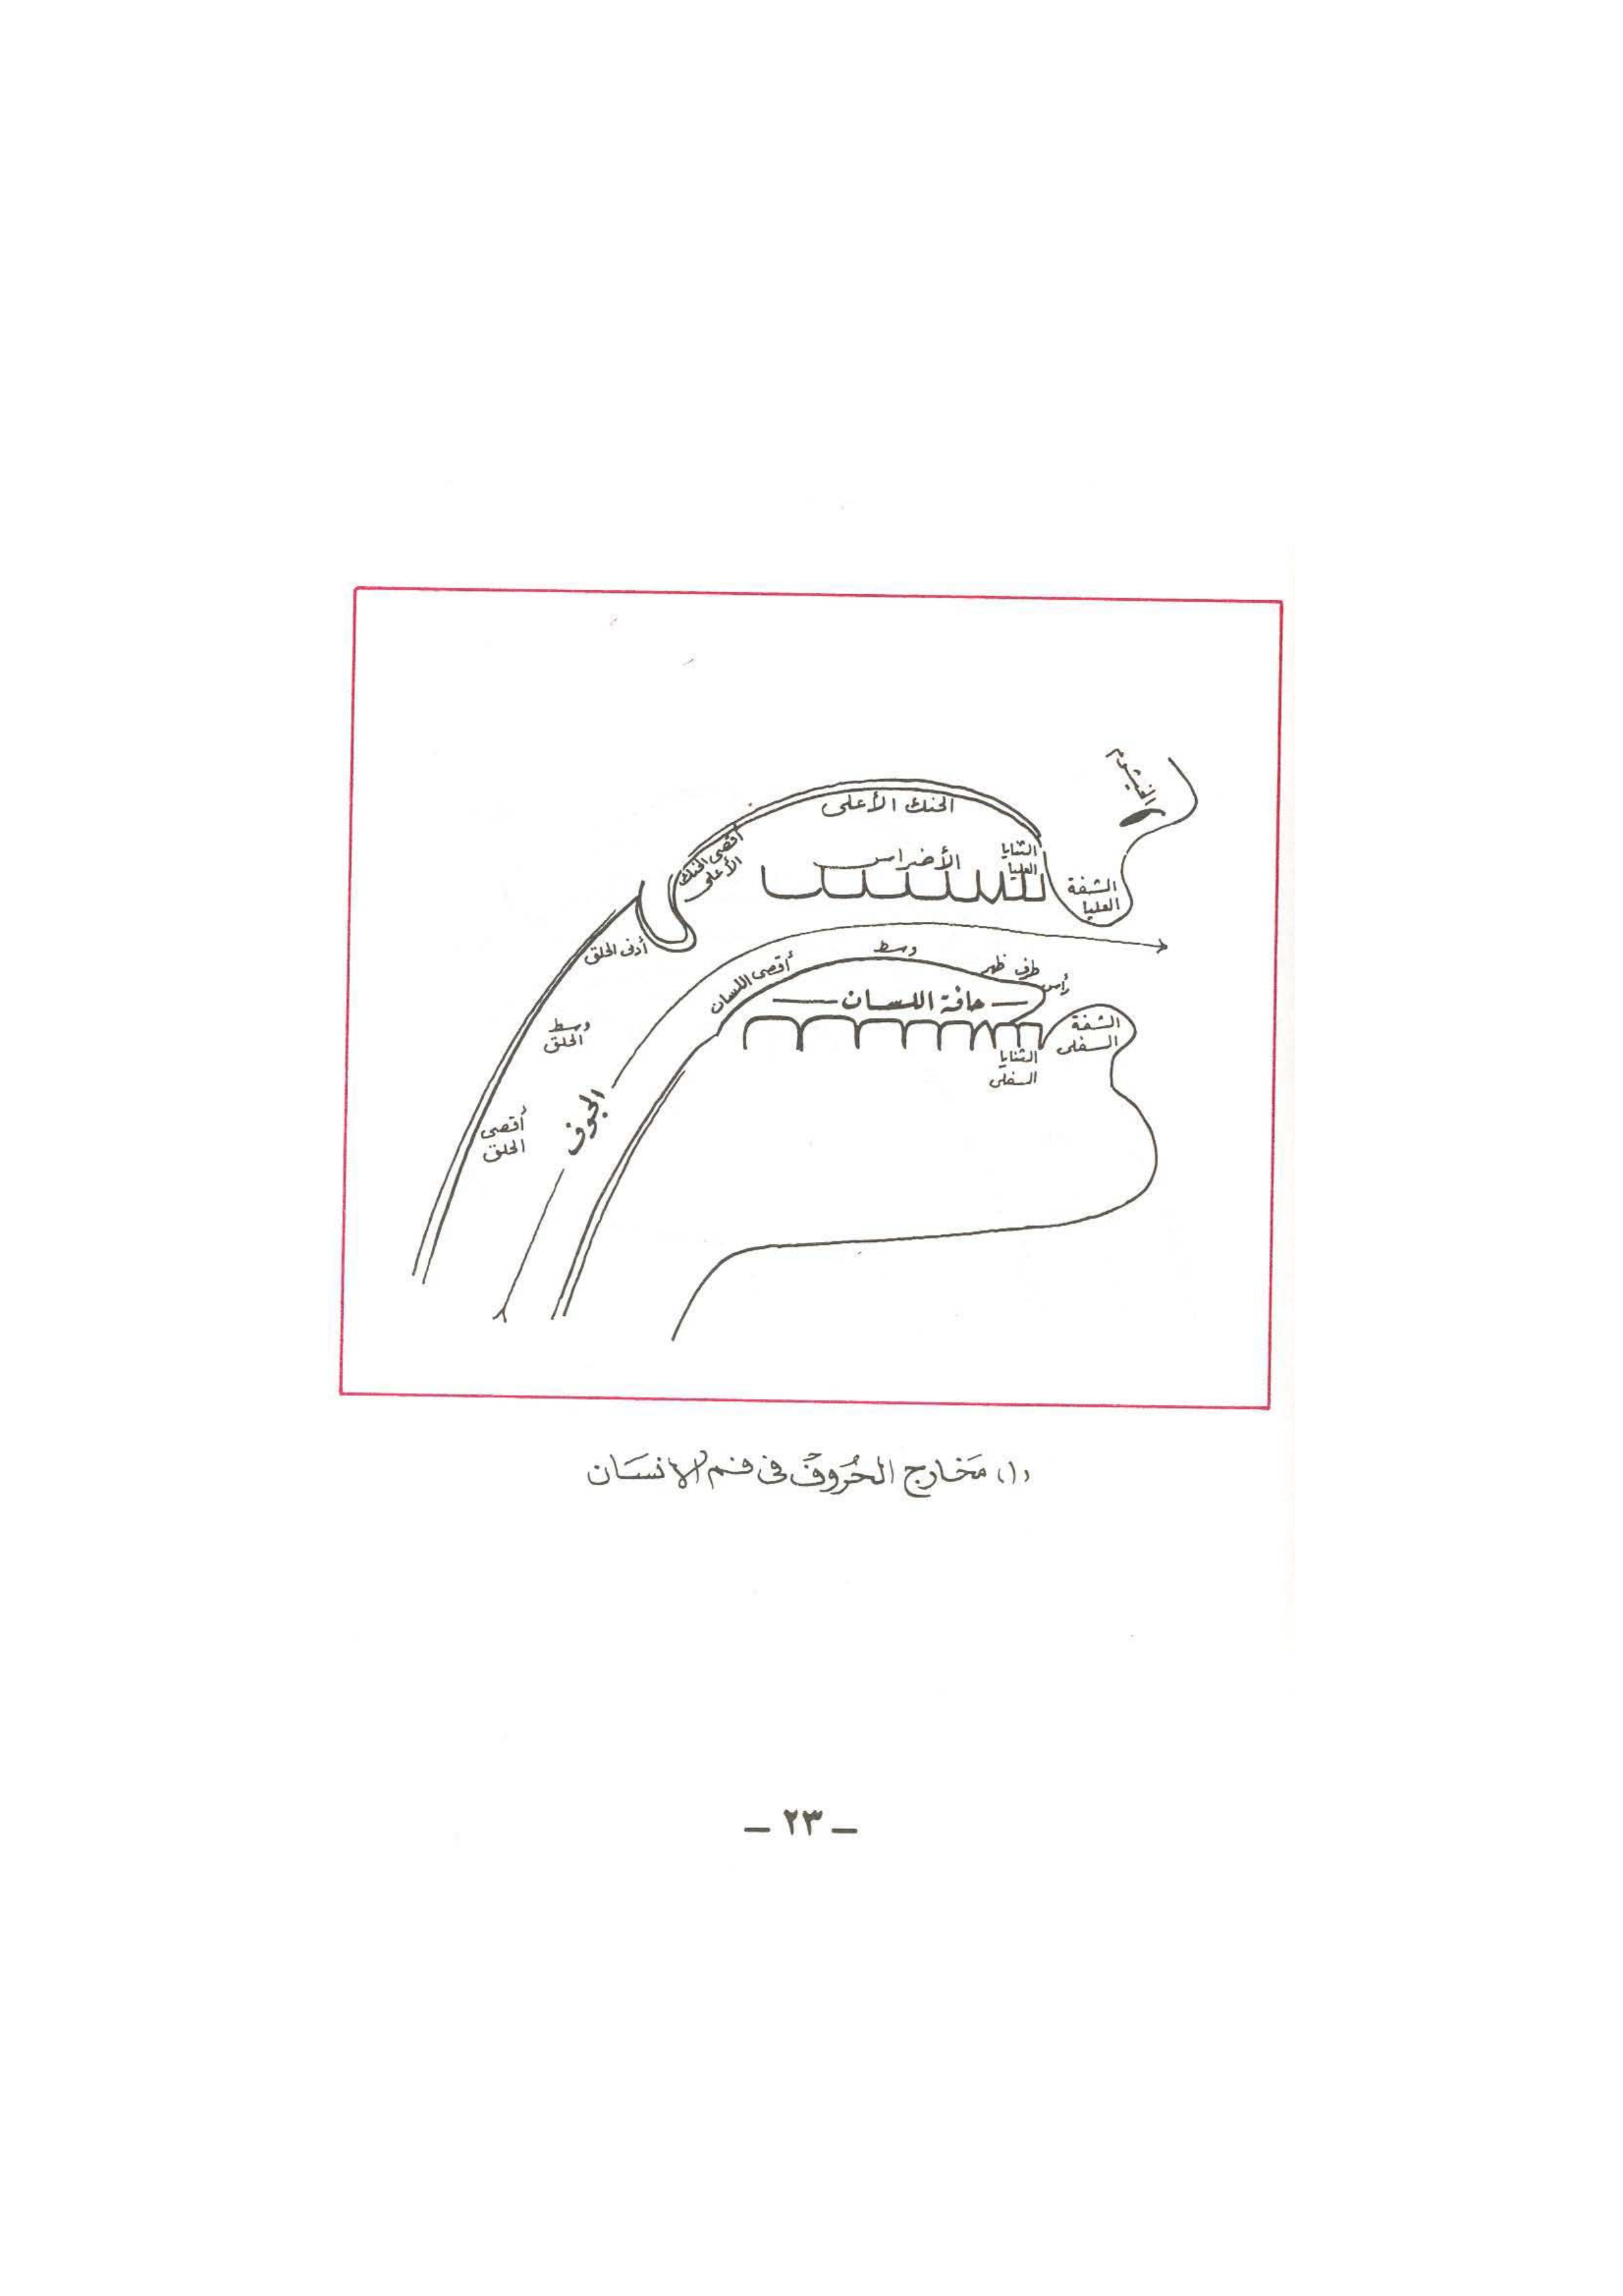 الخيشوم
الحنك الأعلى
أقصى الحنك
الأعلى
الأضراس
الثنايا
العليا
الشفة
العليا
أدنى الحلق
أقصى اللسان
وسط
ظهر
طرف
رأس
حافة اللسان
الشفة
السفلى
الثنايا
السفلى
وسط
الحلق
الجوف
أقصى
الحلق
(١) مَخَارج الحُرُوف في فم الإنسَان
- ٢٣ -